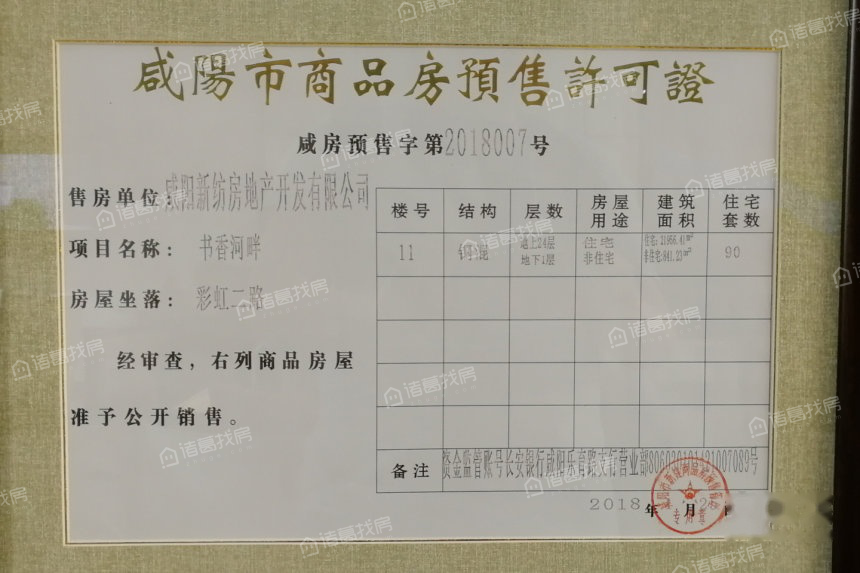 咸陽市商品房預售許可證
咸房预售字第2018007号
售房单位：咸阳新纺房地产开发有限公司
项目名称：书香河畔
房屋坐落：彩虹二路
经审查，右列商品房屋
准予公开销售。
楼号 结构 层数 房屋用途 建筑面积 住宅套数
11 钢混 地上24层 地下1层 住宅 非住宅 住宅: 90
备注 资金监管账号长安银行咸阳乐育路支行营业部
2018年 月
专用章
诸葛找房